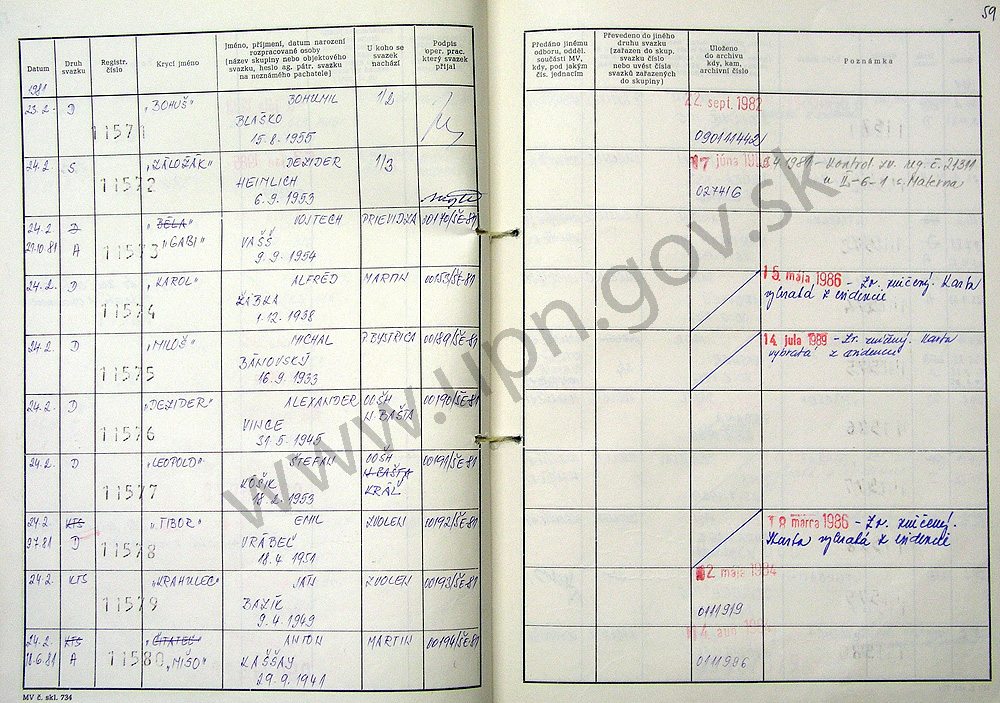 59
Datum
Druh svazku
Registr. číslo
Krycí jméno
Jméno, příjmení, datum narození rozpracované osoby (název skupiny nebo objektového svazku, heslo ag. pátr. svazku na neznámého pachatele)
U koho se svazek nachází
Podpis oper. prac. který svazek přijal
Předáno jinému odboru, odděl. součásti MV, kdy, pod jakým čís. jednacím
Převedeno do jiného druhu svazku (zařazen do skup. svazku číslo nebo uvést čísla svazků zařazených do skupiny)
Uloženo do archivu kdy, kam, archivní číslo
Poznámka
1981
23.2. D 11571 „BOHUŠ" BOHUMIL 1/2 22 sept. 1982
BLAŠKO 09011442
15.8.1955
24.2. S 11572 „ZÁLOŽÁK" DEZIDER 1/3 17 júna 4.1981 - Kontrol zv. reg. č. 21311
HEIMLICH 02741G u II-6-1 s. Materna
6.9.1953
24.2. 11573 „BÉLA" VOJTECH PRIEVIDZA 00170/ŠE-81
27.10.81 A „GABI" VAŠŠ
9.9.1954
24.2. D 11574 „KAROL" ALFRÉD MARTIN 00153/ŠE-81 15. mája 1986 - Zv. zničený. Karta
ŽIBKA vybratá z evidencie
1.12.1938
24.2. D 11575 „MILOŠ" MICHAL P.BYSTRICA 00189/ŠE-81 14. júla 1989 - Zv. zničený. Karta
BÁNOVSKÝ vybratá z evidencie
16.9.1933
24.2. D 11576 „DEZIDER" ALEXANDER OOŠH 00190/ŠE-81
VINCE N-BAŠTA
31.5.1945
24.2. D 11577 „LEOPOLD" ŠTEFAN OOŠH 00191/ŠE-81
KÓŠIK N-BAŠTA
18.2.1953 KRÁĽ
24.2. KTS 11578 „TIBOR" EMIL ZVOLEN 00192/ŠE-81 18. marca 1986 - Zv. zničený.
9.7.81 D VRÁBEĽ Karta vybratá z evidencie
18.4.1951
24.2. KTS 11579 „KRAHULEC" JÁN ZVOLEN 00193/ŠE-81 2. mája 1984
BAZÍK 0111919
9.4.1949
24.2. KTS 11580 „ČITATEĽ" ANTON MARTIN 00194/ŠE-81 4. aug.
18.6.81 A „MIŠO" KAŠŠAY 0111986
29.9.1941
MV č. skl. 734
www.upn.gov.sk